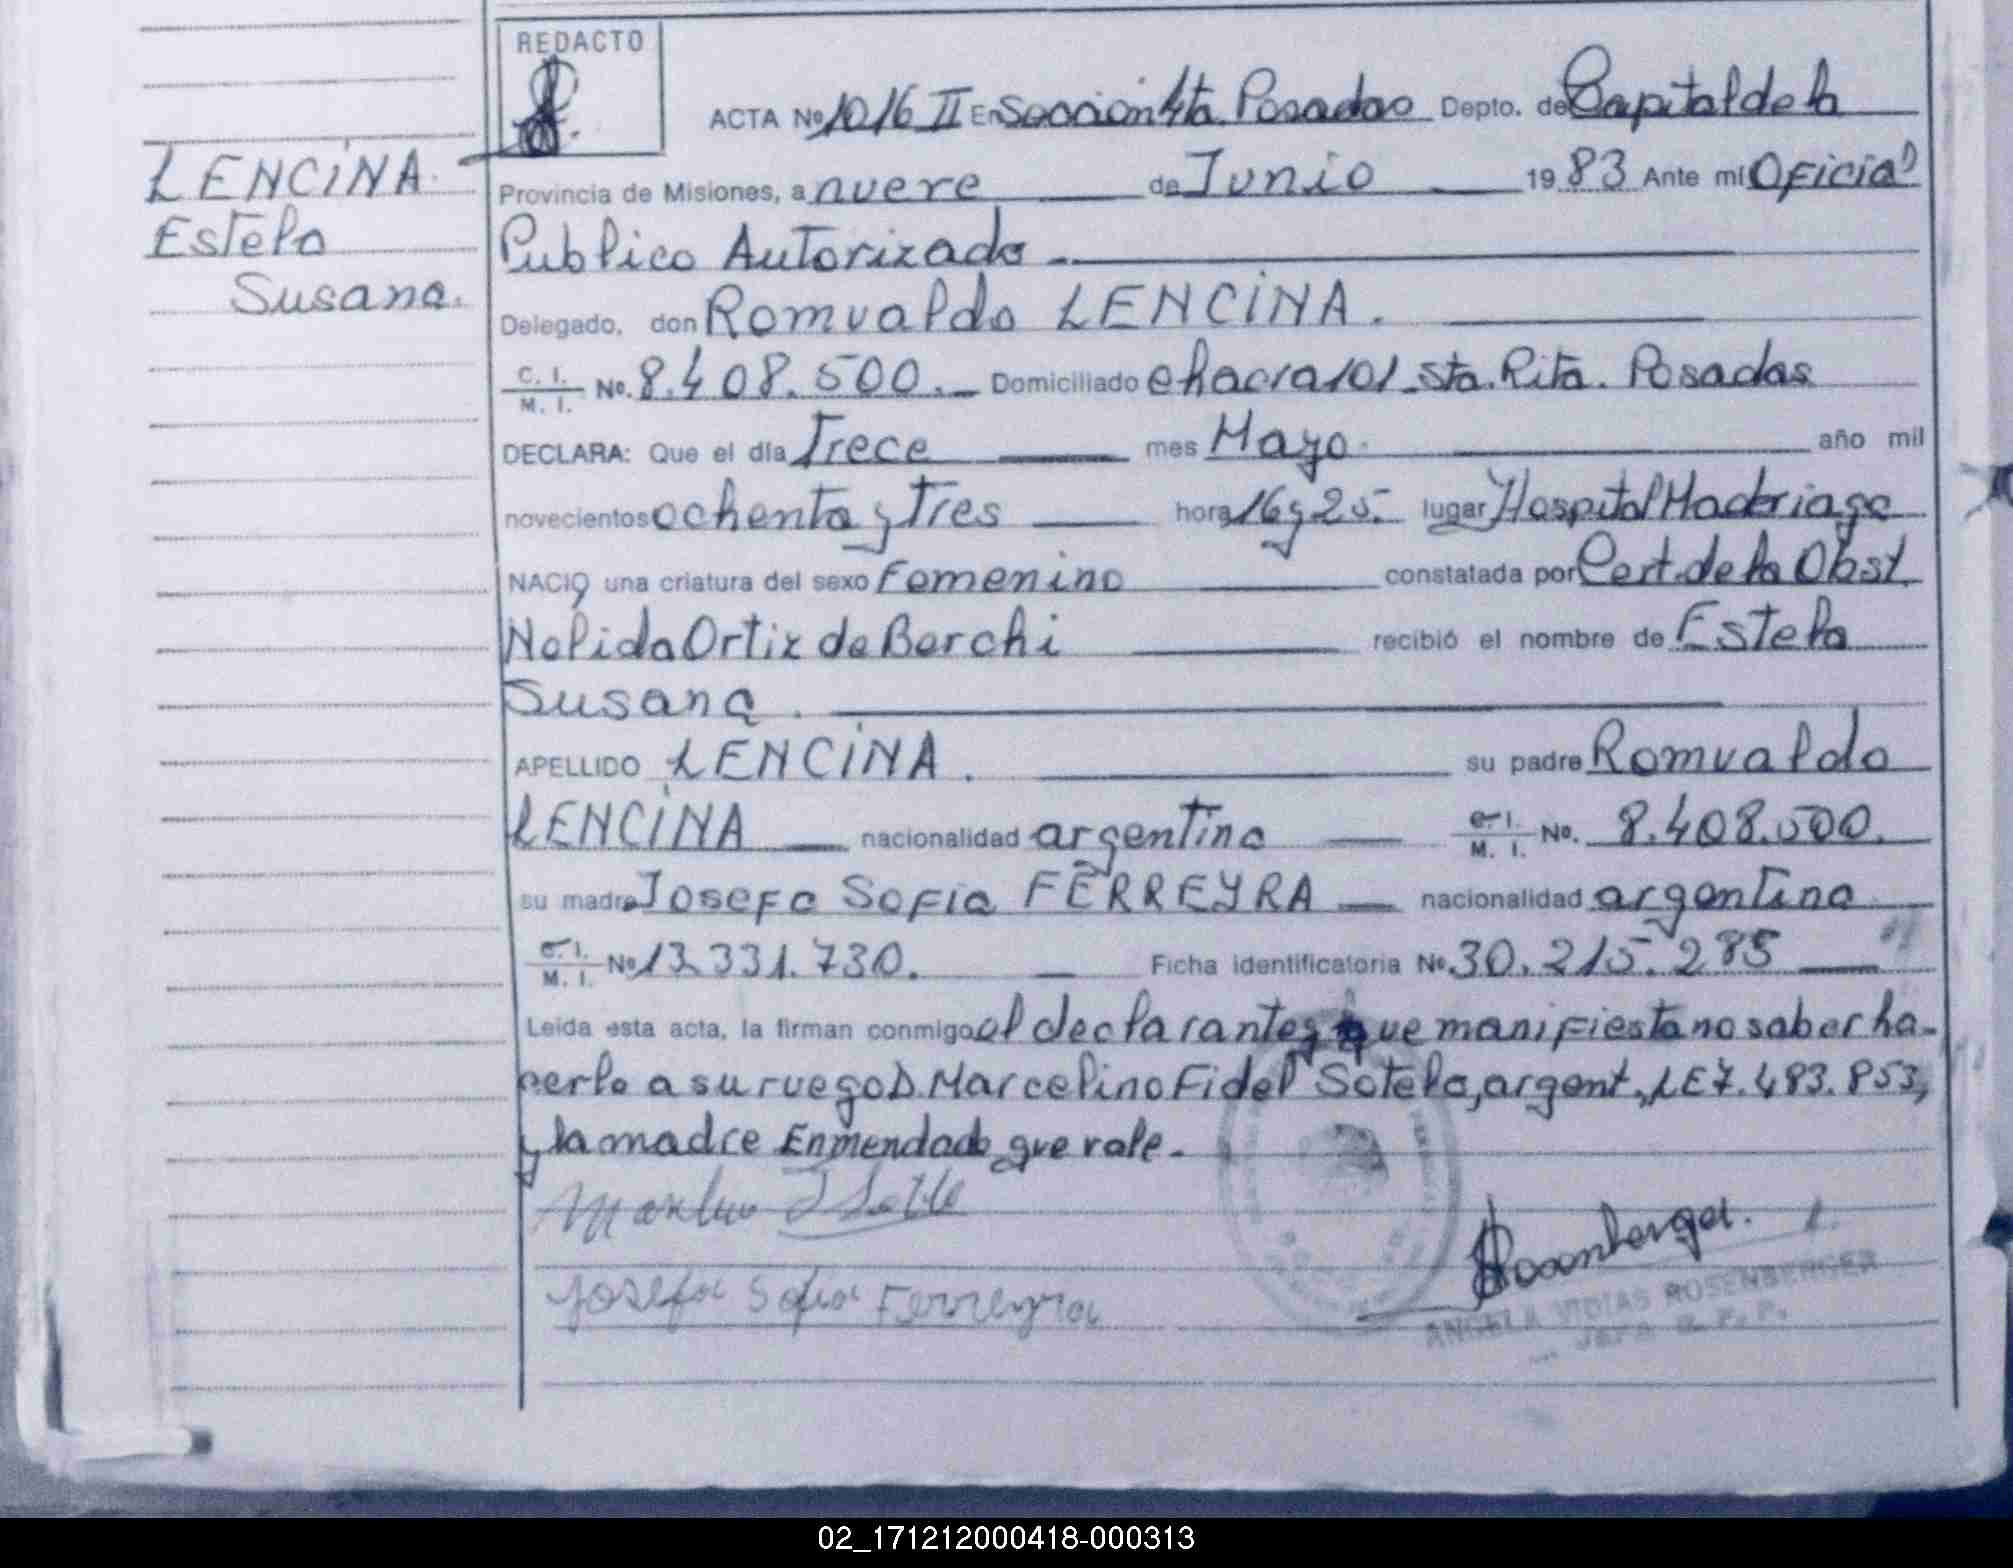 REDACTO
ACTA Nº 1016 II En Sección 4ta. Posadas Depto. de Capital de la
LENCINA
Provincia de Misiones, a nueve de Junio 1983 Ante mí Oficial
Estela
Publico Autorizado
Susana.
Delegado, don Romualdo LENCINA.
C. I. M. I. No. 8.408.500. Domiciliado chacra 101 Sta. Rita. Posadas
DECLARA: Que el día Trece mes Mayo. año mil
novecientos ochenta y Tres hora 16 y 25. lugar Hospital Madariaga
NACIO una criatura del sexo Femenino constatada por Cert. de la Obst.
Nelida Ortiz de Berchi recibió el nombre de Estela
Susana.
APELLIDO LENCINA. su padre Romualdo
LENCINA nacionalidad argentino C. I. M. I. No. 8.408.500.
su madre Josefa Sofia FERREYRA nacionalidad argentina
C. I. M. I. Nº 13.331.730. Ficha identificatoria Nº 30.215.285
Leída esta acta, la firman conmigo el declarante y que manifiesta no saber ha-
cerlo a su ruego D. Marcelino Fidel Sotelo, argent., LE 7.483.853,
y la madre Enmendado que vale.
Josefa Sofia Ferreyra
Rosenberger.
ANGELA VIDIAS ROSENBERGER
JEFA
02_171212000418-000313